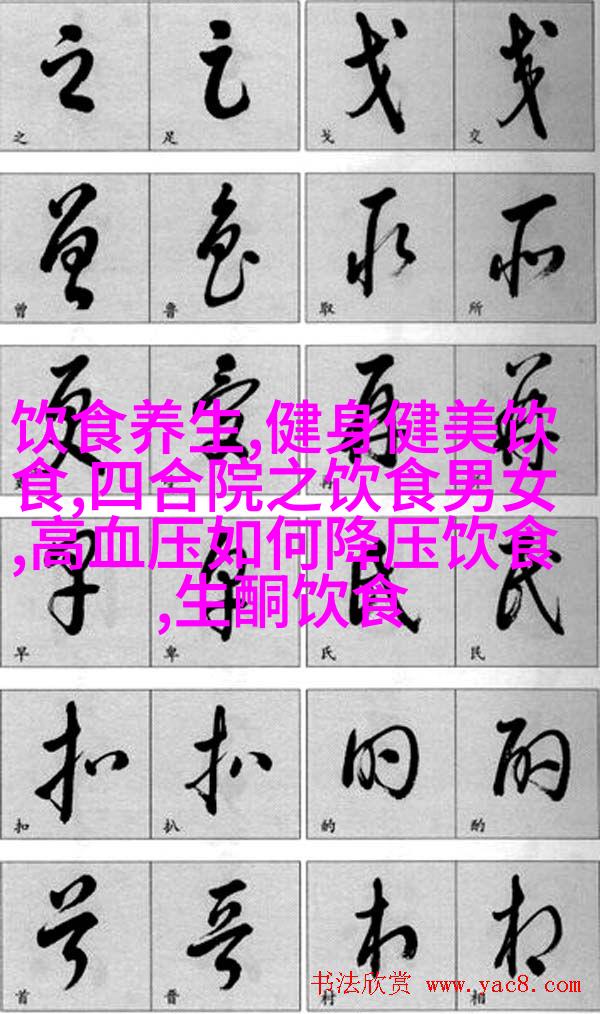 之 足 戈 交
曾 鲁 取 所
饮食养生,健身健美饮
食,四合院之饮食男女
,高血压如何降压饮食
,生酮饮食
早 卑 氏 民
扣 扒 的 酌
首 晋 村 相
书法欣赏 www.yac8.com